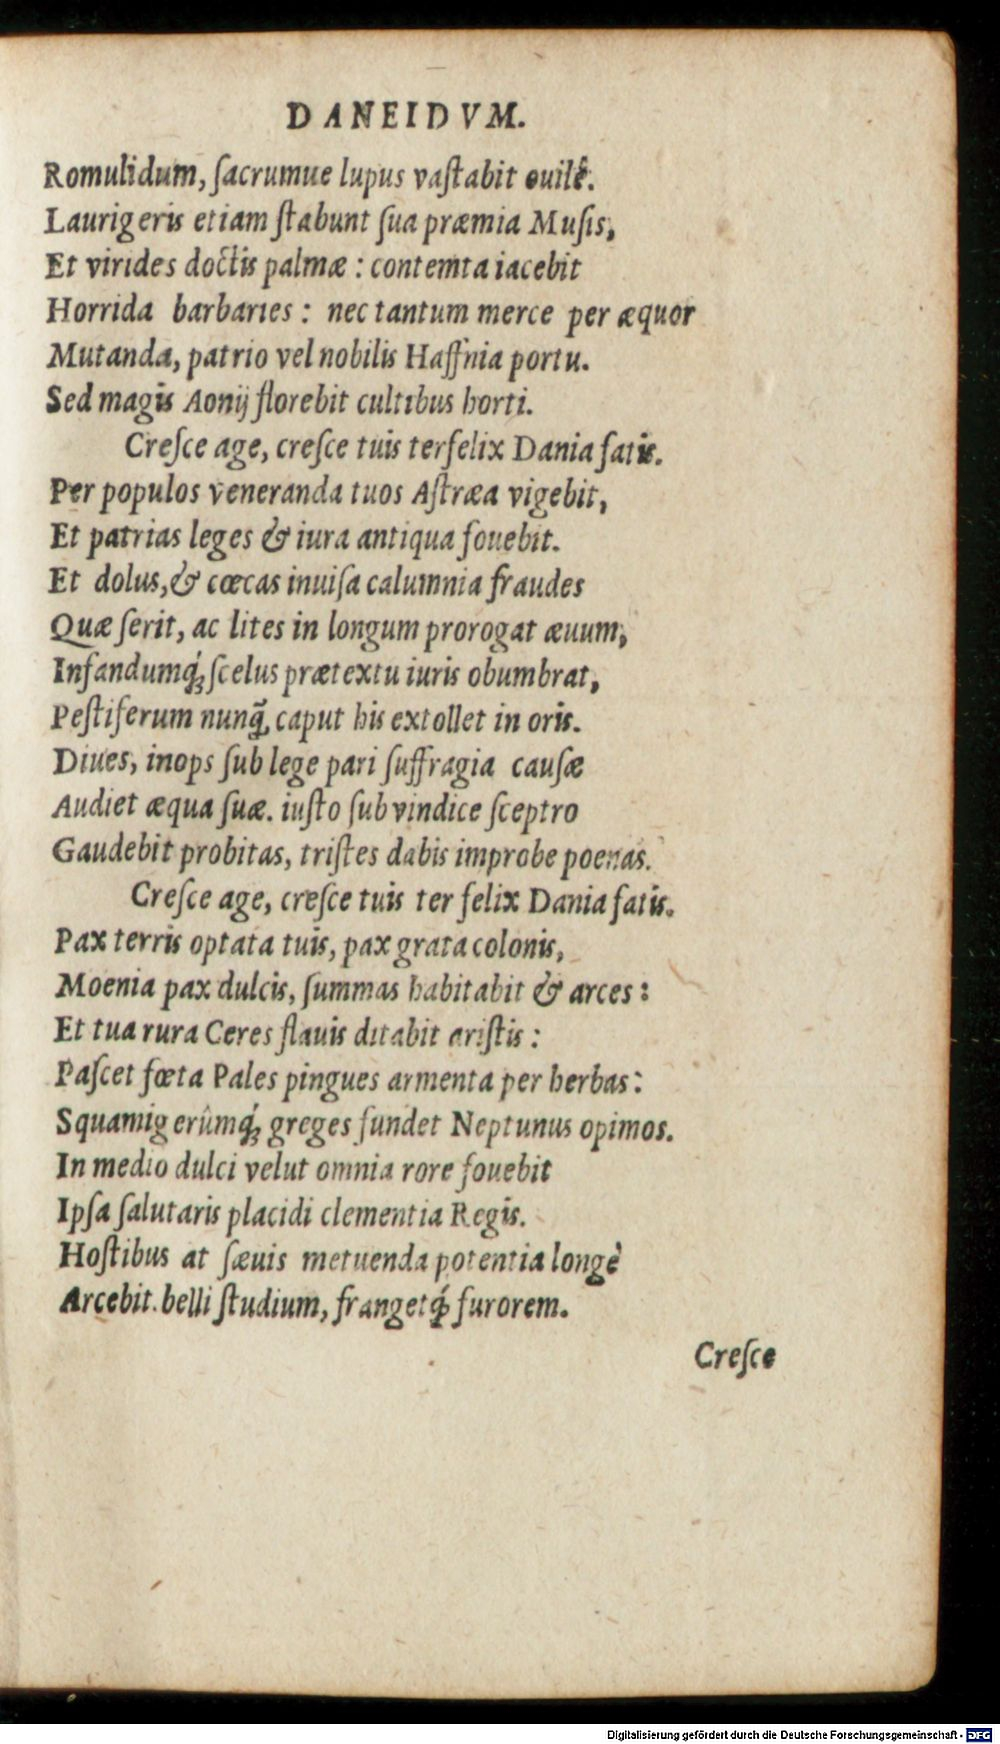 DANEIDVM.
Romulidum, ſacrumue lupus vaſtabit ouile.
Laurigeris etiam ſtabunt ſua præmia Muſis,
Et virides doctis palmæ : contemta iacebit
Horrida barbaries : nec tantum merce per æquor
Mutanda, patrio vel nobilis Haffnia portu.
Sed magis Aonij florebit cultibus horti.
Creſce age, creſce tuis ter felix Dania fatis.
Per populos veneranda tuos Aſtræa vigebit,
Et patrias leges & iura antiqua fouebit.
Et dolus, & cœcas inuiſa calumnia fraudes
Quæ ſerit, ac lites in longum prorogat æuum,
Infandumq́; ſcelus prætextu iuris obumbrat,
Peſtiferum nunq̃ caput his extollet in oris.
Diues, inops ſub lege pari ſuffragia cauſæ
Audiet æqua ſuæ. iuſto ſub vindice ſceptro
Gaudebit probitas, triſtes dabis improbe poenas.
Creſce age, creſce tuis ter felix Dania fatis.
Pax terris optata tuis, pax grata colonis,
Moenia pax dulcis, ſummas habitabit & arces :
Et tua rura Ceres flauis ditabit ariſtis :
Paſcet fœta Pales pingues armenta per herbas :
Squamigerûmq́; greges fundet Neptunus opimos.
In medio dulci velut omnia rore fouebit
Ipſa ſalutaris placidi clementia Regis.
Hoſtibus at ſæuis metuenda potentia longè
Arcebit. belli ſtudium, frangetq́; furorem.
Creſce
Digitalisierung gefördert durch die Deutsche Forschungsgemeinschaft - DFG